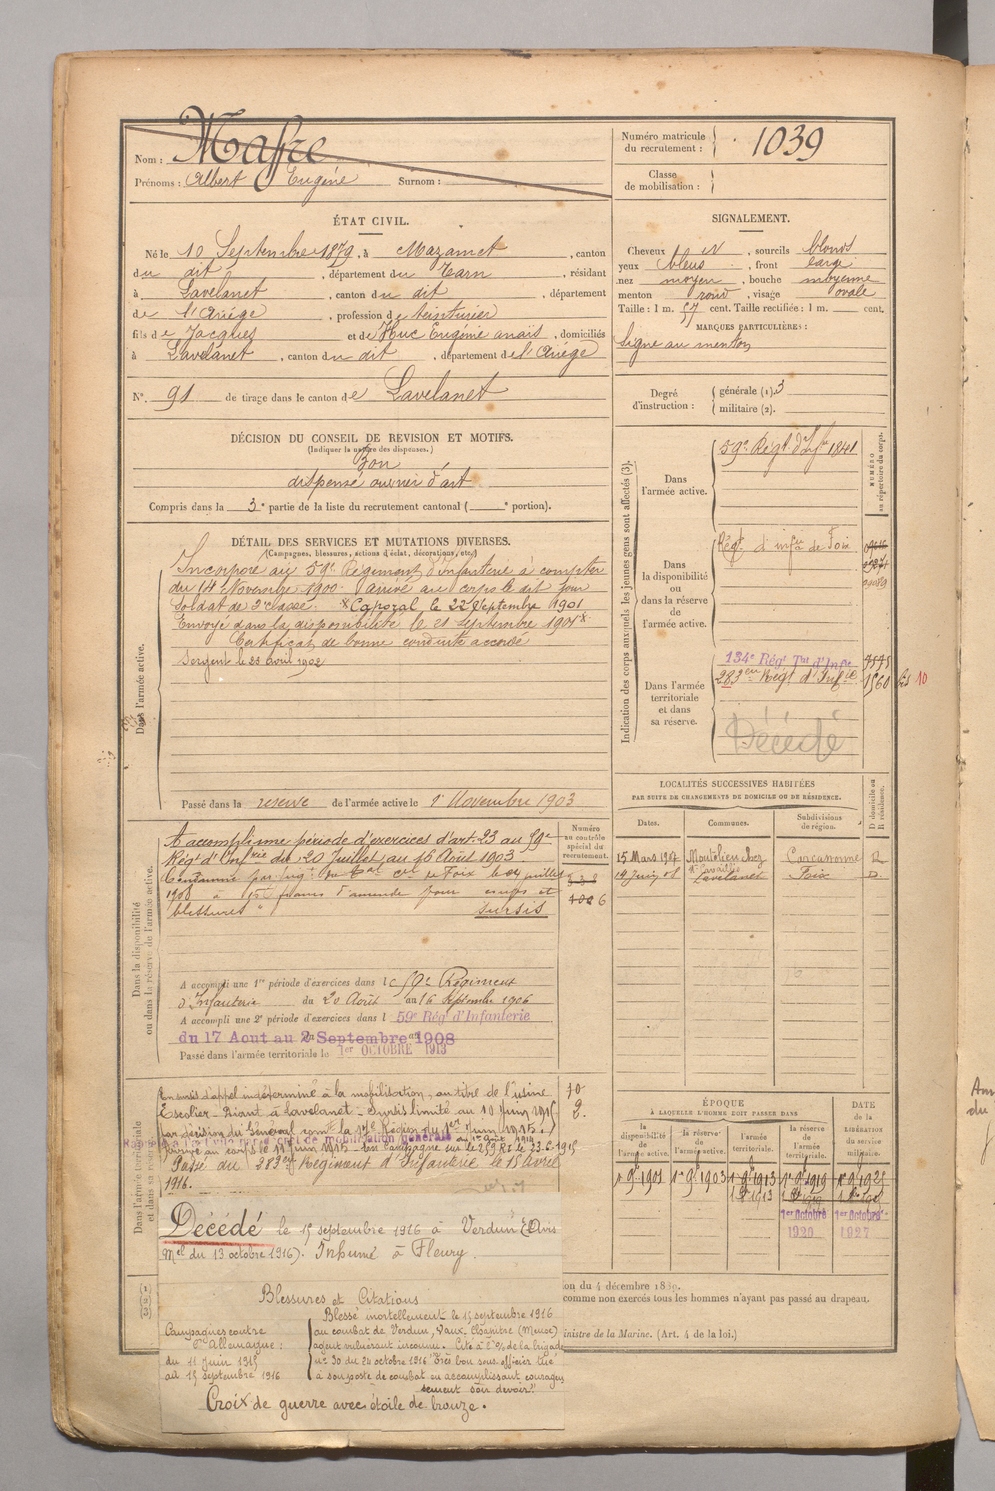 Nom : Mafre
Prénoms : Albert Eugène Surnom :
Numéro matricule du recrutement : 1039
Classe de mobilisation :
ÉTAT CIVIL.
Né le 10 Septembre 1879, à Mazamet, canton
du dit, département du Tarn, résidant
à Lavelanet, canton du dit, département
de l'Ariége, profession de teinturier
fils de Jacques et de Huc Eugénie anaïs, domiciliés
à Lavelanet, canton du dit, département de l'Ariége
N° 91 de tirage dans le canton de Lavelanet
SIGNALEMENT.
Cheveux N, sourcils blonds
yeux bleus, front large
nez moyen, bouche moyenne
menton rond, visage ovale
Taille : 1 m. 57 cent. Taille rectifiée : 1 m. cent.
MARQUES PARTICULIÈRES :
Signe au menton
Degré d'instruction : générale (1). 3
militaire (2).
DÉCISION DU CONSEIL DE REVISION ET MOTIFS.
(Indiquer la nature des dispenses.)
Bon
dispensé ouvrier d'art
Compris dans la 3e partie de la liste du recrutement cantonal ( e portion).
DÉTAIL DES SERVICES ET MUTATIONS DIVERSES.
(Campagnes, blessures, actions d'éclat, décorations, etc.)
Dans l'armée active.
Incorporé au 59e Régiment d'infanterie à compter
du 14 Novembre 1900. Arrivé au corps le dit jour
Soldat de 2e classe. x Caporal le 22 Septembre 1901
Envoyé dans la disponibilité le 21 septembre 1901 x
Certificat de bonne conduite accordé
Sergent le 23 avril 1902
Passé dans la reserve de l'armée active le 1er Novembre 1903
Indication des corps auxquels les jeunes gens sont affectés (3).
NUMÉRO au répertoire du corps.
Dans l'armée active.
59e Régt d'Infie 1841
Dans la disponibilité ou dans la réserve de l'armée active.
Régt d'infie de Foix
Dans l'armée territoriale et dans sa réserve.
134e Régt Tal d'Infie 4545
283eme Régt d'Infie 1560 bis 10
Décédé
Dans la disponibilité ou dans la réserve de l'armée active.
Numéro au contrôle spécial du recrutement.
A accompli une période d'exercices d'art. 23 au 59e
Régt d'Infrie du 20 Juillet au 16 Août 1903
Condamné par jugt du Bal Cel de Foix le 04 juillet
1908 à 15 francs d'amende pour coups et
blessures " sursis
A accompli une 1re période d'exercices dans le 59e Régiment
d'Infanterie du 20 Août au 16 Septembre 1906
A accompli une 2e période d'exercices dans l 59e Régt d'Infanterie
du 17 Aout au 2 Septembre 1908
Passé dans l'armée territoriale le 1er OCTOBRE 1913
LOCALITÉS SUCCESSIVES HABITÉES
PAR SUITE DE CHANGEMENTS DE DOMICILE OU DE RÉSIDENCE.
Dates. Communes. Subdivisions de région. D domicile ou R résidence.
15 Mars 1904 Montolieu chez Carcassonne R
14 Juin 08 Lavelanet Foix D.
Dans l'armée territoriale et dans sa réserve
En sursis d'appel indéterminé à la mobilisation, au titre de l'usine
Escolier-Diant à Lavelanet - Sursis limité au 10 Juin 1915
par décision du Général comt la 17e Région du 1er Juin 1915.
de mobilisation générale
Arrivé au corps le 11 Juin 1915 - En campagne sur le 259 RI le 23-6-1915
Passé du 283eme Régiment d'Infanterie le 15 Avril
1916.
Décédé le 15 septembre 1916 à Verdun (Avis
Mel du 13 octobre 1916). Inhumé à Fleury.
Blessures et Citations
Campagnes contre l'Allemagne :
du 11 juin 1915
au 15 septembre 1916
Blessé mortellement le 15 septembre 1916
au combat de Verdun, Vaux, Chapitre (Meuse)
agent vulnérant inconnu. Cité à l'O/ de la brigade
no 30 du 20 octobre 1916 "Très bon sous-officier tué
à son poste de combat en accomplissant courageu
sement son devoir".
Croix de guerre avec étoile de bronze.
ÉPOQUE
À LAQUELLE L'HOMME DOIT PASSER DANS
DATE DE LA LIBÉRATION DU SERVICE militaire.
la disponibilité de l'armée active. la réserve de l'armée active. l'armée territoriale. la réserve de l'armée territoriale.
1er 9bre 1901 1er 9bre 1903 1er 9bre 1913 1er 9bre 1919 1er 9bre 1925
1er Octobre 1920 1er Octobre 1927
ion du 4 décembre 1889.
comme non exercés tous les hommes n'ayant pas passé au drapeau.
inistre de la Marine. (Art. 4 de la loi.)